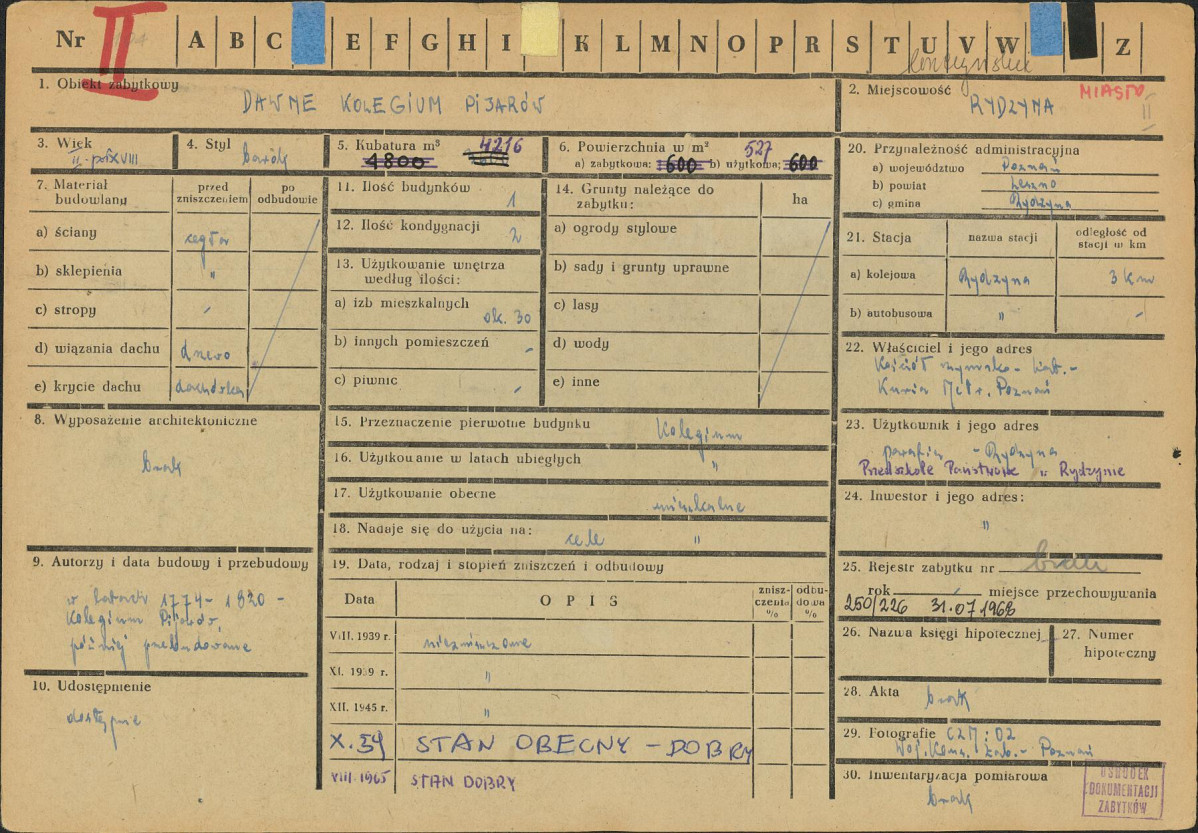 Nr II A B C E F G H I K L M N O P R S T U V W Z
1. Obiekt zabytkowy
DAWNE KOLEGIUM PIJARÓW
2. Miejscowość
MIASTO
RYDZYNA
II
3. Wiek
II poł. XVIII
4. Styl barok
5. Kubatura m³ 4216
4800
6. Powierzchnia w m² 527
a) zabytkowa: 600 b) użytkowa: 600
7. Materiał budowlany
przed zniszczeniem
po odbudowie
a) ściany cegła
b) sklepienia "
c) stropy -
d) wiązania dachu drzewo
e) krycie dachu dachówka
8. Wyposażenie architektoniczne
brak
9. Autorzy i data budowy i przebudowy
w latach 1774-1820 -
Kolegium Pijarów,
później przebudowane
10. Udostępnienie
dostępne
11. Ilość budynków 1
12. Ilość kondygnacji 2
13. Użytkowanie wnętrza według ilości:
a) izb mieszkalnych ok. 30
b) innych pomieszczeń -
c) piwnic -
14. Grunty należące do zabytku:
ha
a) ogrody stylowe
b) sady i grunty uprawne
c) lasy
d) wody
e) inne
15. Przeznaczenie pierwotne budynku Kolegium
16. Użytkowanie w latach ubiegłych "
17. Użytkowanie obecne mieszkalne
18. Nadaje się do użycia na: cele "
19. Data, rodzaj i stopień zniszczeń i odbudowy
Data
OPIS
zniszczenia %
odbudowa %
VIII. 1939 r. niezniszczone
XI. 1939 r. "
XII. 1945 r. "
X. 59 STAN OBECNY - DOBRY
VIII. 1965 STAN DOBRY
20. Przynależność administracyjna
a) województwo Poznań
b) powiat Leszno
c) gmina Rydzyna
21. Stacja
nazwa stacji
odległość od stacji w km
a) kolejowa Rydzyna 3 km
b) autobusowa " -
22. Właściciel i jego adres
Kościół rzymsko-kat. -
Kuria Metr. Poznań
23. Użytkownik i jego adres
parafia - Rydzyna
Przedszkole Państwowe w Rydzynie
24. Inwestor i jego adres:
"
25. Rejestr zabytku nr brak
rok - miejsce przechowywania
250/226 31.07.1968
26. Nazwa księgi hipotecznej
27. Numer hipoteczny
28. Akta brak
29. Fotografie CZM:OZ
Woj. Kons. Zab. - Poznań
30. Inwentaryzacja pomiarowa
brak
OŚRODEK
DOKUMENTACJI
ZABYTKÓW